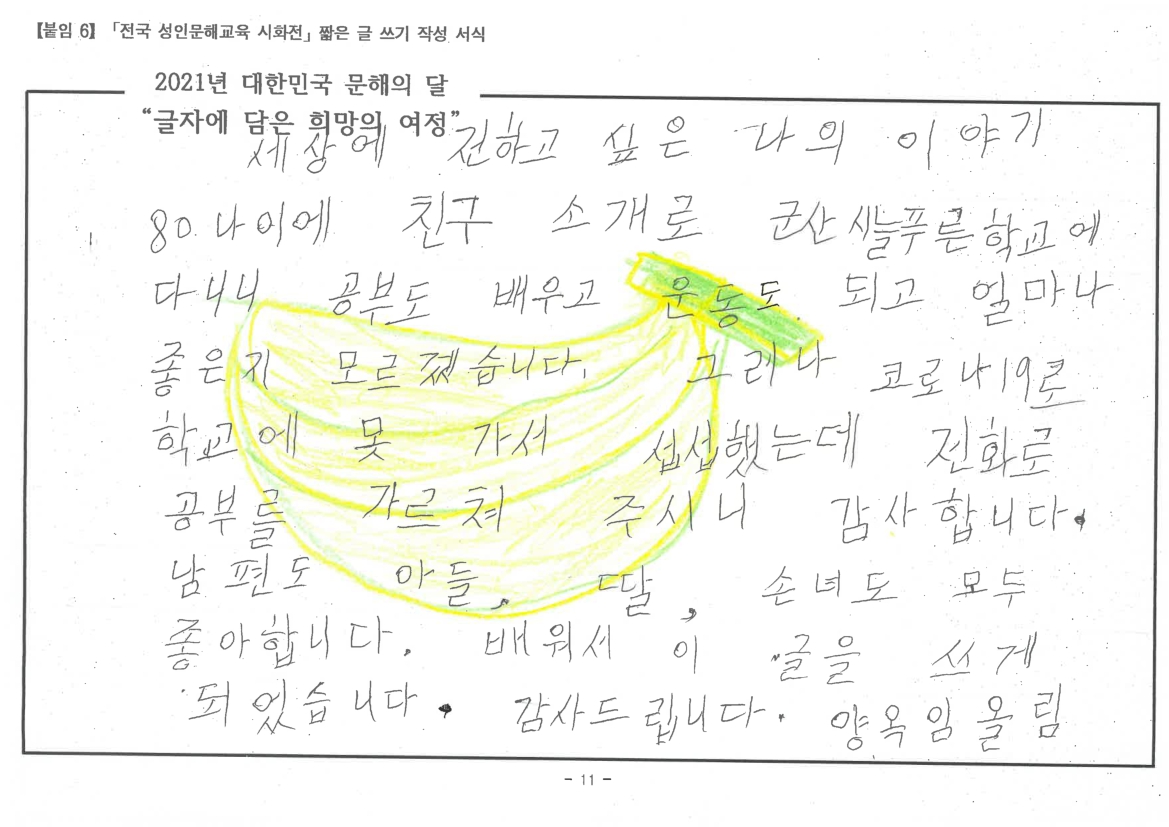 【붙임 6】 「전국 성인문해교육 시화전」 짧은 글 쓰기 작성 서식
2021년 대한민국 문해의 달
“글자에 담은 희망의 여정”
세상에 전하고 싶은 나의 이야기
80 나이에 친구 소개로 군산 시늘푸른학교에
다니니 공부도 배우고 운동도 되고 얼마나
좋은지 모르겠습니다. 그러나 코로나19로
학교에 못 가서 섭섭했는데 전화로
공부를 가르쳐 주시니 감사합니다.
남편도 아들, 딸, 손녀도 모두
좋아합니다. 배워서 이 글을 쓰게
되었습니다. 감사드립니다. 양옥임 올림
- 11 -